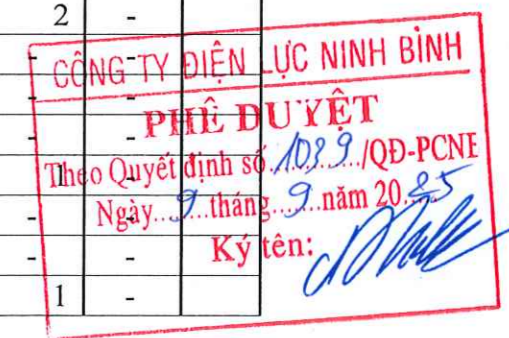 2 -
CÔNG TY ĐIỆN LỰC NINH BÌNH
PHÊ DUYỆT
Theo Quyết định số 1039 /QĐ-PCNB
1
Ngày 9 tháng 9 năm 2025
- -
Ký tên:
- -
1 -